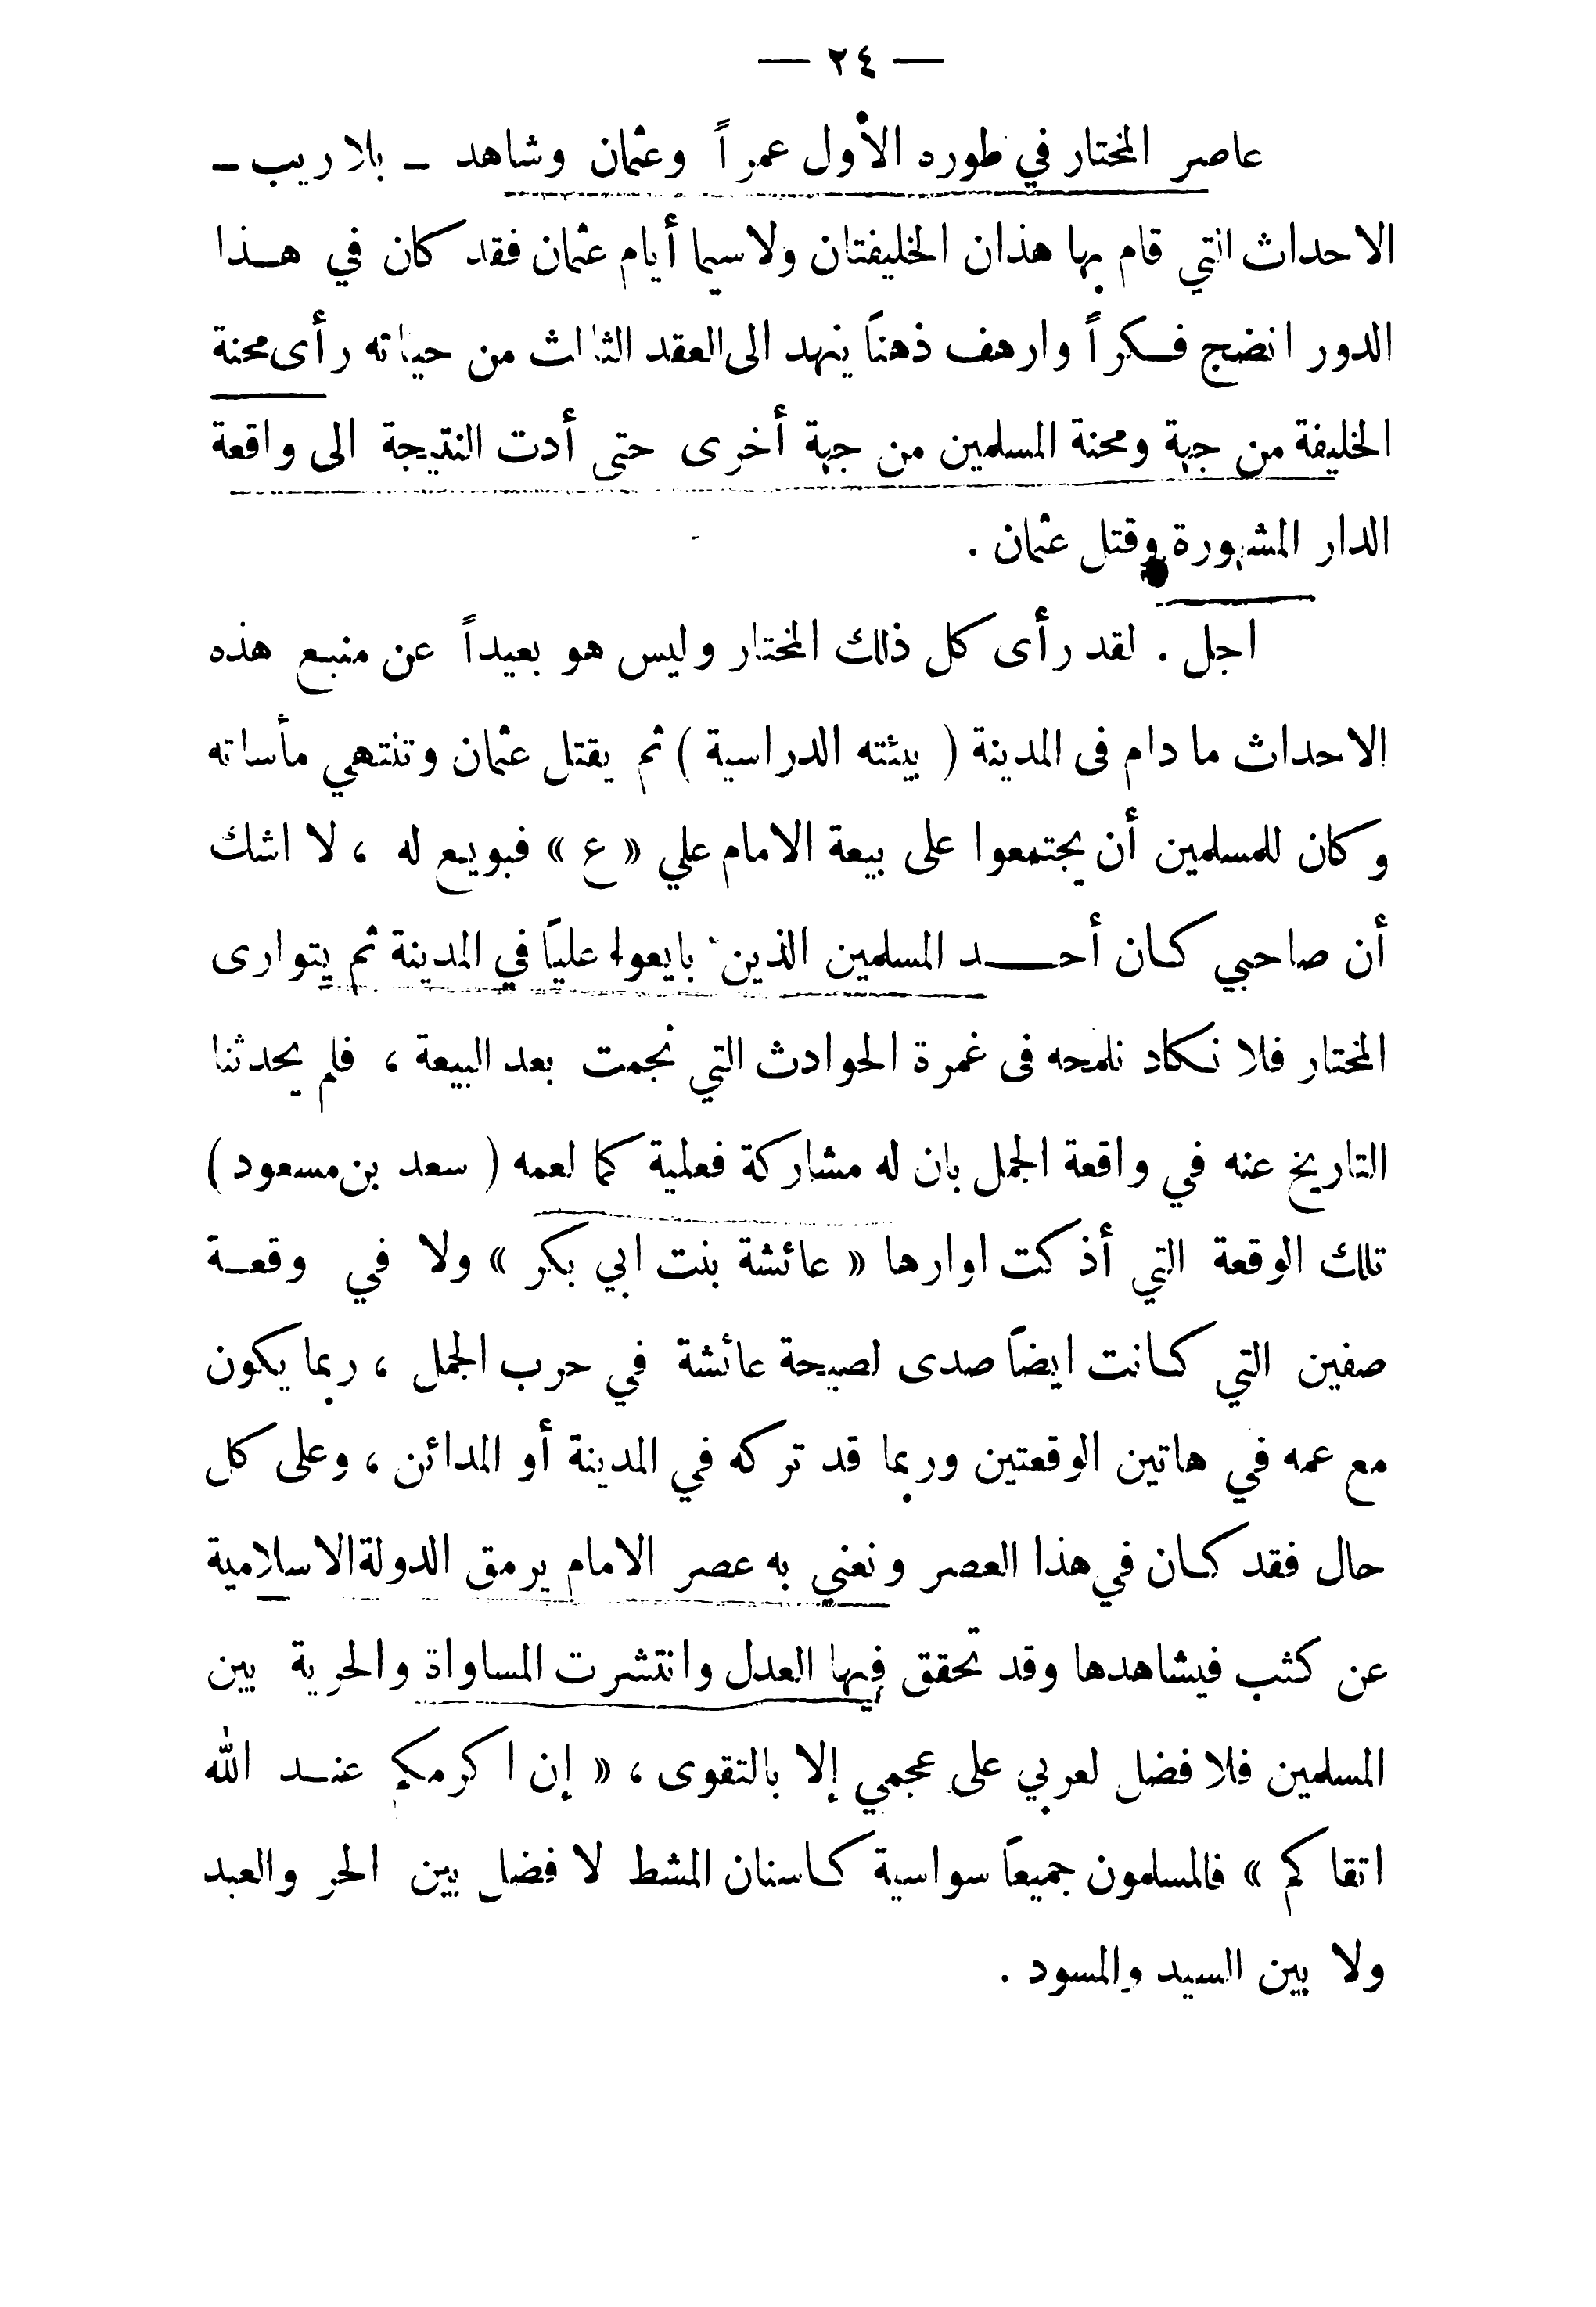 — ٢٤ —
عاصر المختار في طوره الأول عمراً وعثمان وشاهد ـ بلا ريب ـ
الاحداث التي قام بها هذان الخليفتان ولاسيما أيام عثمان فقد كان في هـذا
الدور انضج فـكراً وارهف ذهناً ينهد الى العقد الثالث من حياته رأى محنة
الخليفة من جهة ومحنة المسلمين من جهة أخرى حتى أدت النتيجة الى واقعة
الدار المشهورة وقتل عثمان .
اجل . لقد رأى كل ذلك المختار وليس هو بعيداً عن منبع هذه
الاحداث ما دام فى المدينة ( بيئته الدراسية ) ثم يقتل عثمان وتنتهي مأساته
وكان للمسلمين أن يجتمعوا على بيعة الامام علي « ع » فبويع له ، لا اشك
أن صاحبي كـان أحـــد المسلمين الذين بايعوا علياً في المدينة ثم يتوارى
المختار فلا نـكاد نلمحه فى غمرة الحوادث التي نجمت بعد البيعة ، فلم يحدثنا
التاريخ عنه في واقعة الجمل بان له مشاركة فعلية كما لعمه ( سعد بن مسعود )
تلك الوقعة التي أذكت اوارها « عائشة بنت ابي بكر » ولا في وقعـة
صفين التي كـانت ايضاً صدى لصيحة عائشة في حرب الجمل ، ربما يكون
مع عمه في هاتين الوقعتين وربما قد تركه في المدينة أو المدائن ، وعلى كل
حال فقد كـان في هذا العصر ونعني به عصر الامام يرمق الدولة الاسلامية
عن كثب فيشاهدها وقد تحقق فيها العدل وانتشرت المساواة والحرية بين
المسلمين فلا فضل لعربي على عجمي إلا بالتقوى ، « إن اكرمكم عنـد الله
اتقاكم » فالمسلمون جميعاً سواسية كـاسنان المشط لا فضل بين الحر والعبد
ولا بين السيد والمسود .